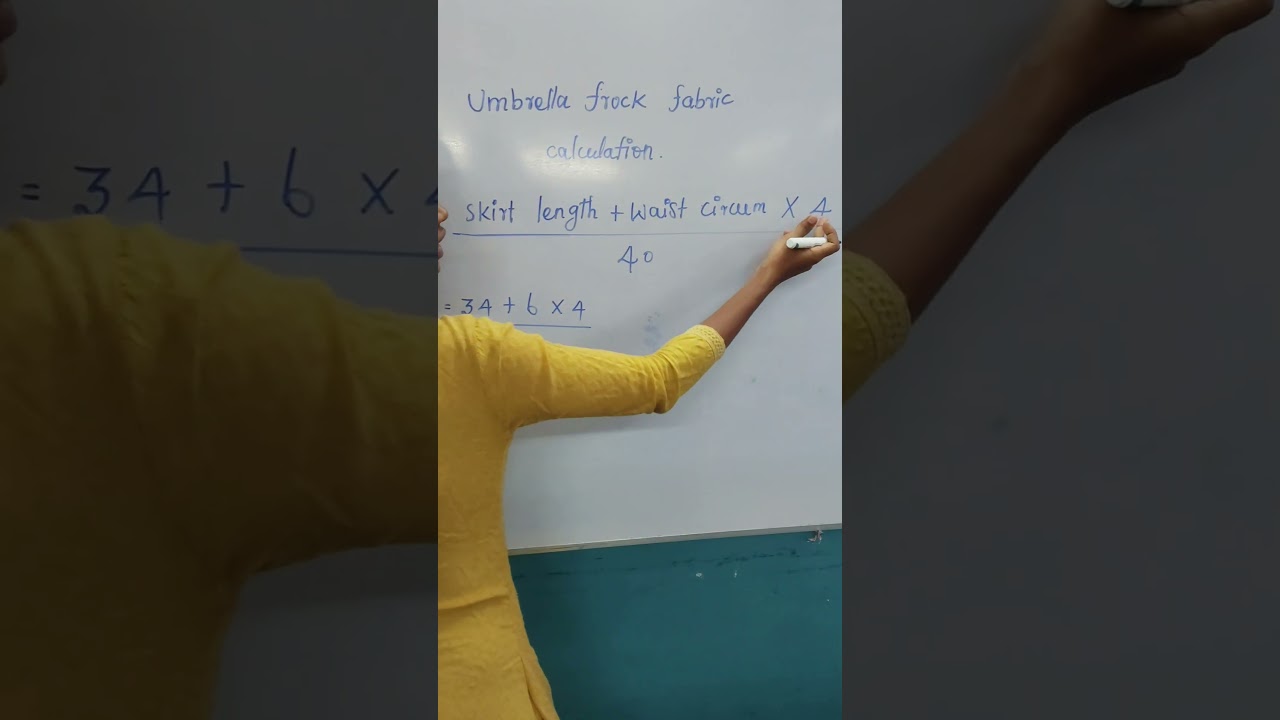 Umbrella frock fabric
calculation.
skirt length + Waist circum X 4
40
= 34 + 6 X 4
= 34 + 6 X